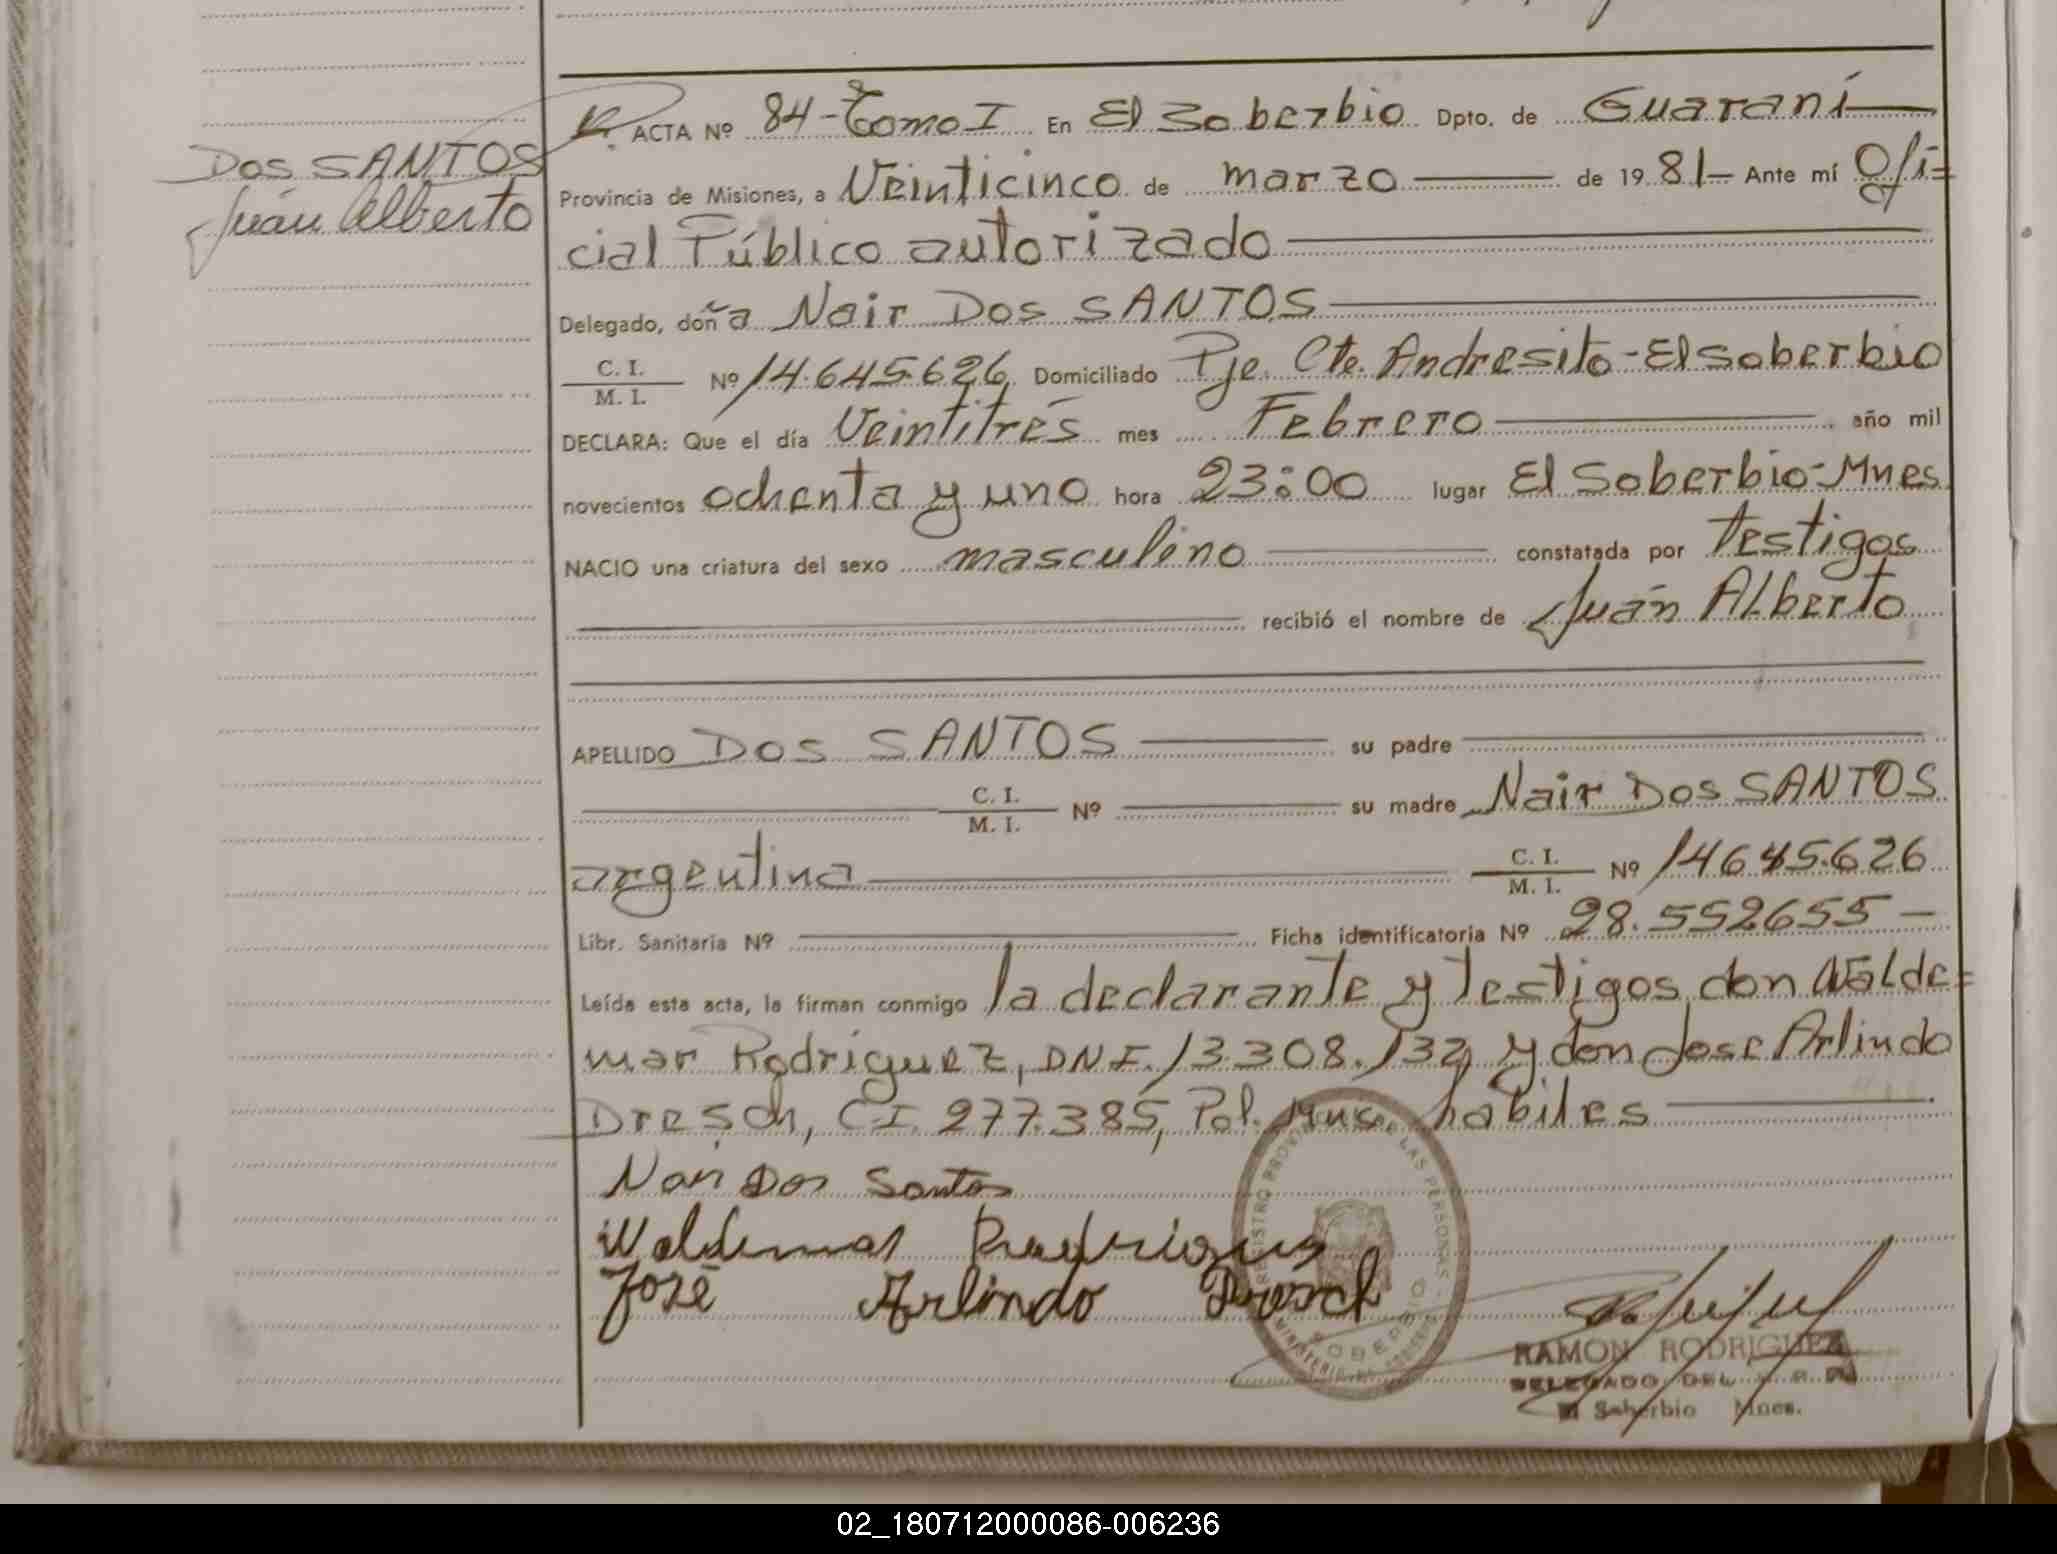 Dos SANTOS
Juán Alberto
ACTA Nº 84-Tomo I En El Soberbio Dpto. de Guaraní
Provincia de Misiones, a Veinticinco de marzo de 1981 Ante mí Ofi=
cial Público autorizado
Delegado, doña Nair Dos SANTOS
C. I.
M. I. Nº 14.645.626 Domiciliado Pje. Cte. Andresito-El Soberbio
DECLARA: Que el día Veintitrés mes Febrero año mil
novecientos ochenta y uno hora 23:00 lugar El Soberbio-Mnes
NACIO una criatura del sexo masculino constatada por testigos
recibió el nombre de Juán Alberto
APELLIDO Dos SANTOS su padre
C. I.
M. I. Nº su madre Nair Dos SANTOS
argentina C. I.
M. I. Nº 14645.626
Libr. Sanitaria Nº Ficha identificatoria Nº 28.552655-
Leída esta acta, la firman conmigo la declarante y testigos don Walde=
mar Rodriguez, DNI. 13.308.132 y don Jose Arlindo
Dresch, C.I. 277.385, Pol. Mnes. habiles
Nair Dos Santos
Waldemar Rodriguez
José Arlindo Dresch
REGISTRO PROVINCIAL DE LAS PERSONAS
SOBERBIO
RAMON RODRIGUEZ
DELEGADO DEL R. P.
El Soberbio Mnes.
02_180712000086-006236